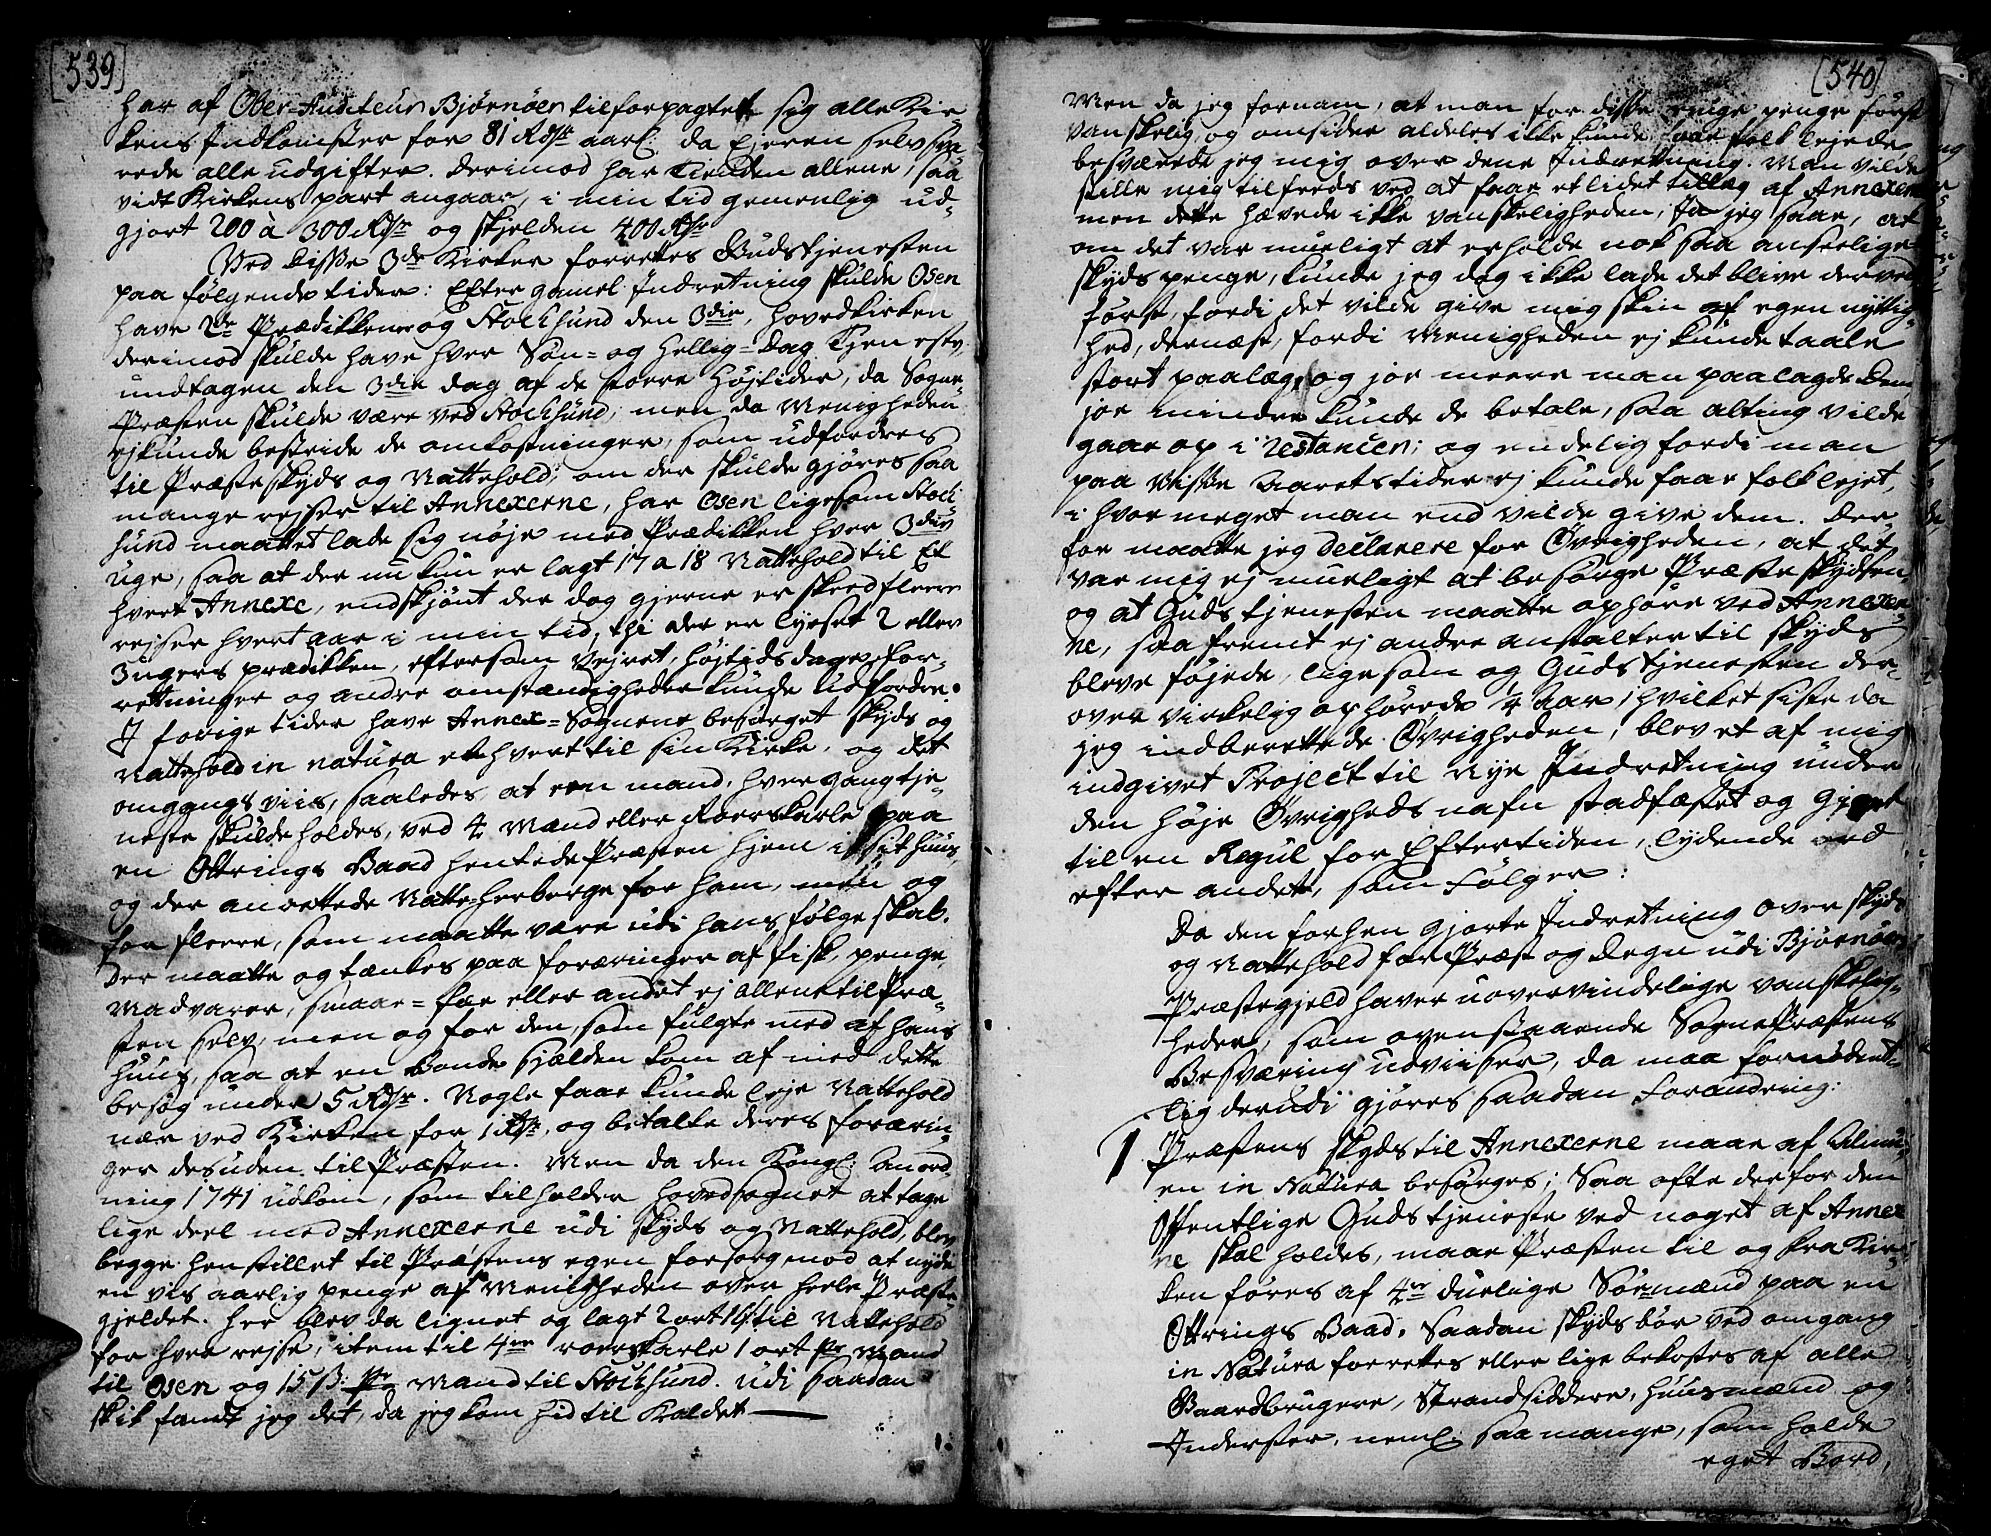 [539]
har af Ober-Auditeur Bjørnøer tilforpagtet sig alle Kir-
kens Indkomster for 81 Rdlr aarl: da Ejeren selv sva-
rede alle udgifter. Derimod har Tienden allene, saa
vidt Kirkens part angaar, i min tid gemenlig ud-
gjort 200 à 300 Rdlr og skjelden 400 Rdlr
Ved disse 3de Kirker forrettes Gudstjenesten
paa følgende tider: Efter gamel Indretning skulde Osen
have 2de Prædikkener og Stocksund den 3die, hovedkirken
derimod skulde have hver Søn- og Hellig-Dag Tjeneste,
undtagen den 3die dag af de store Højtider, da Sogne-
Præsten skulde være ved Stocksund; men da Menigheden
ej kunde bestride de omkostninger, som udfordres
til Præsteskyds og Nattehold, om der skulde gjøres saa
mange rejser til Annexerne, har Osen ligesom Stock-
sund maattet lade sig nøje med Prædikken hver 3die
uge, saa at der nu kun er lagt 17 a 18 Nattehold til Et
hvert Annexe, endskjønt der dog gjerne er skeed fleere
rejser hvert aar i min tid, thi der er lyset 2 eller
3 ugers prædikken, eftersom Vejret, højtids dage, for-
retninger og andre omstændigheder kunde udfordre.
I forige tider have Annex-Sognene besørget skyds og
Nattehold in natura et hvert til sin Kirke, og det
omgangs viis, saaledes at een mand, hver gang tje-
neste skulde holdes, ved 4 Mænd eller Roerskarle paa
en Ottrings Baad hentede Præsten hjem i sit huus,
og der anrettede Natte-herberge for ham, men og
for fleere, som maatte være udi hans følgeskab.
Der maatte og tænkes paa foræringer af fisk, penge,
Madvarer, smaae-fæe eller andet ej allene til Præ-
sten selv, men og for den, som fulgte med af hans
Huus, saa at en Bonde sjælden kom af med dette
besøg under 5 Rdlr. Nogle faae kunde leje Nattehold
nær ved Kirken for 1 Rdlr, og betalte deres forærin-
ger desuden til Præsten. Men da den Kongl: Anord-
ning 1741 udkom, som tilholder hovedsognet at tage
lige deel med Annexerne udi skyds og Nattehold, blev
begge henstillet til Præstens egen forsorg mod at nyde
en vis aarlig penge af Menigheden over heele Præste-
gjeldet. her blev da lignet og lagt 2 ort til Nattehold
for hver rejse, item til 4re roerskarle 1 ort pr Mand
til Osen og 15 ß: pr Mand til Stocksund. udi saadan
skik fandt jeg det, da jeg kom hid til Kaldet.
[540]
Men da jeg fornam, at man for disse ringe penge først
vanskelig og omsider aldeles ikke kunde faae folk lejede
besværede jeg mig over denne Indretning. Man vilde
stille mig tilfreds ved at faae et lidet tillæg af Annexerne
men dette hævede ikke vanskeligheden, Ja jeg saae, at
om det var mueligt at erholde nok saa anseelige
skyds penge, kunde jeg dog ikke lade det blive derved
først, fordi det vilde give mig skin af egen nyttig-
hed, dernæst, fordi Menigheden ej kunde taale
stort paalæg, og jor meere man paalagde dem,
jor mindre kunde de betale, saa alting vilde
gaae op i restancer; og endelig fordi man
paa visse Aarets tider ej kunde faae folk lejet,
i hvor meget man end vilde give dem. Der-
for maatte jeg declarere for Øvrigheden, at det
var mig ej mueligt at besørge Præste skydsen,
og at Guds tjenesten maatte ophøre ved Annexer-
ne, saafremt ej andre anstalter til skyds
bleve føjede, lige som og Guds tjenesten der-
over virkelig ophørede 1/4 Aar, hvilket siste da
jeg indberettede Øvrigheden, blev et af mig
indgivet Project til nye Indretning under
den høje Øvrigheds nafn stadfæstet og gjort
til en Regul for Eftertiden, lydende ord
efter andet, som følger:
Da den forhen gjorte Indretning over skyds
og Nattehold for Præst og Degn udi Bjørnøer
Præstegjeld haver uovervindelige vanskelig-
heder, som ovenstaaende SognePræstens
Besværing udviiser, da maa fornødent-
lig derudi gjøres saadan Forandring:
1. Præstens skyds til Annexerne maae af Almu-
en in Natura besørges; Saa ofte derfor den
Offentlige Guds tjeneste ved noget af Annex-
ne skal holdes, maae Præsten til og fra Kir-
ken føres af 4re duelige Sørmænd paa en
Ottrings Baad. Saadan skyds bør ved omgang
in Natura forrettes eller lige bekostes af alle
Gaardbrugere, Strandsiddere, Huusmænd og
Inderster, neml: saa mange, som holde
eget Bord,